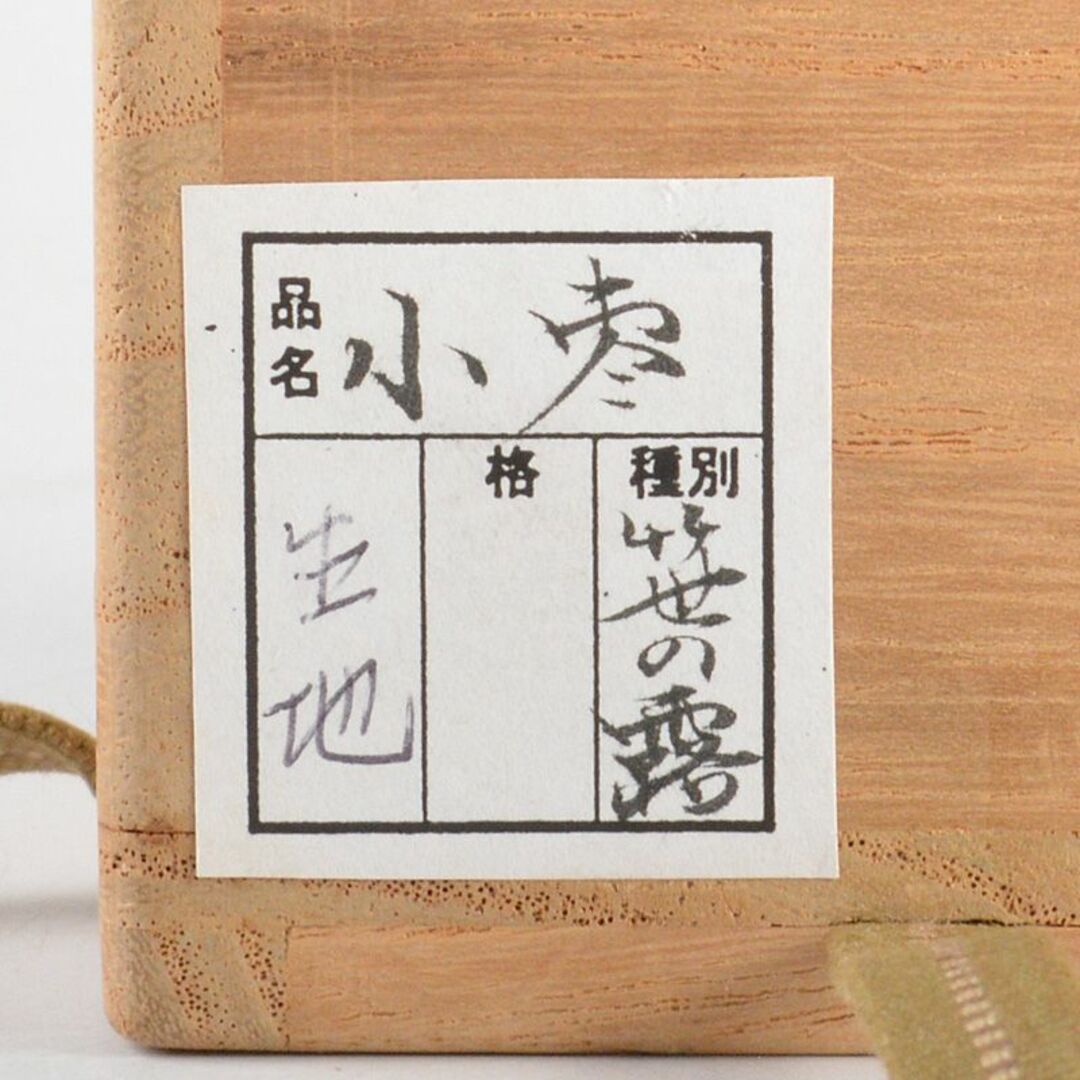 品名 小棗
種別 笹の露
格
生地